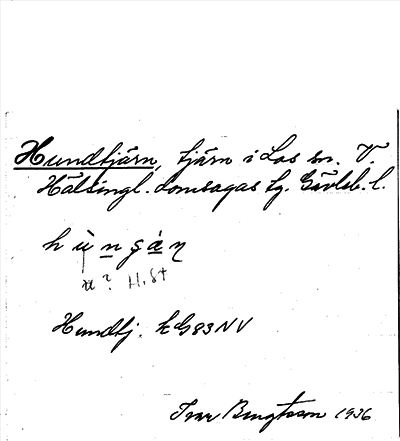 Hundtjärn, tjärn i Los sn. V.
Hälsingl. domsagas tg. Gävleb. l.
h ù n g á η
u? H.St
Hundtj. k G83NV
Ivar Bengtsson 1936